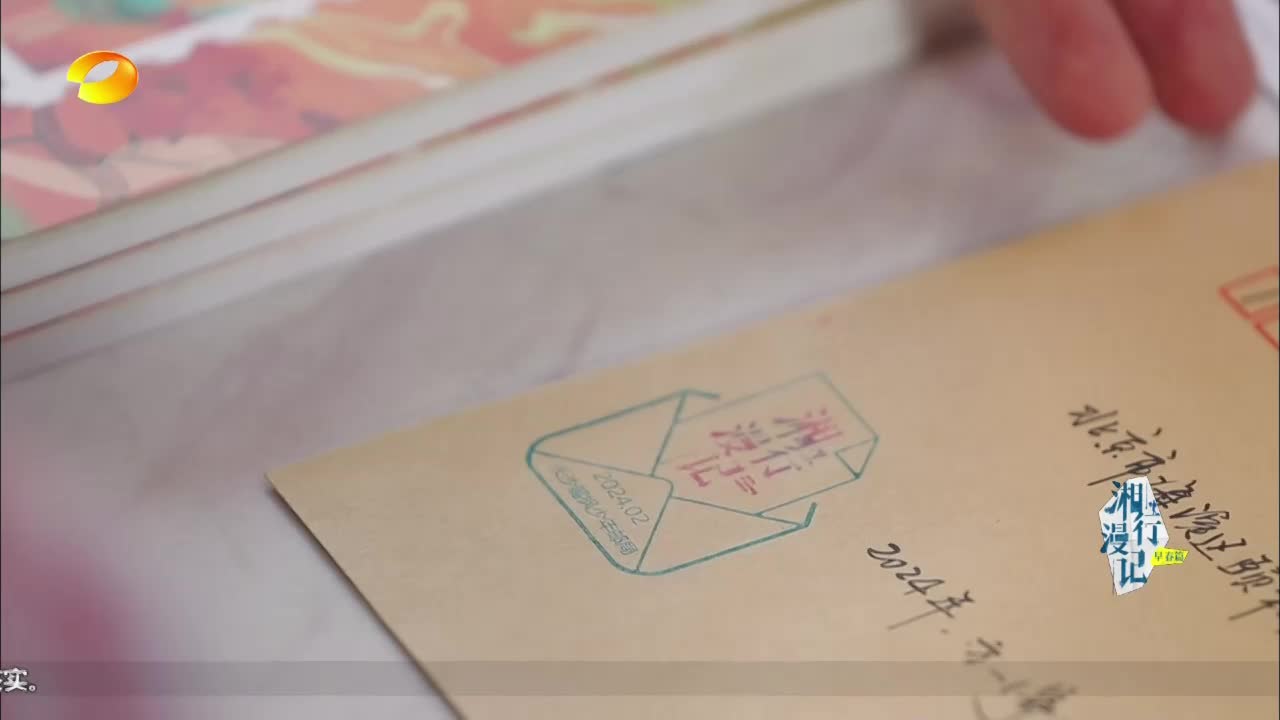 湘行
漫记
2024.02
北京市海淀区颐和
2024年.
湘行
漫记
早春篇
实。